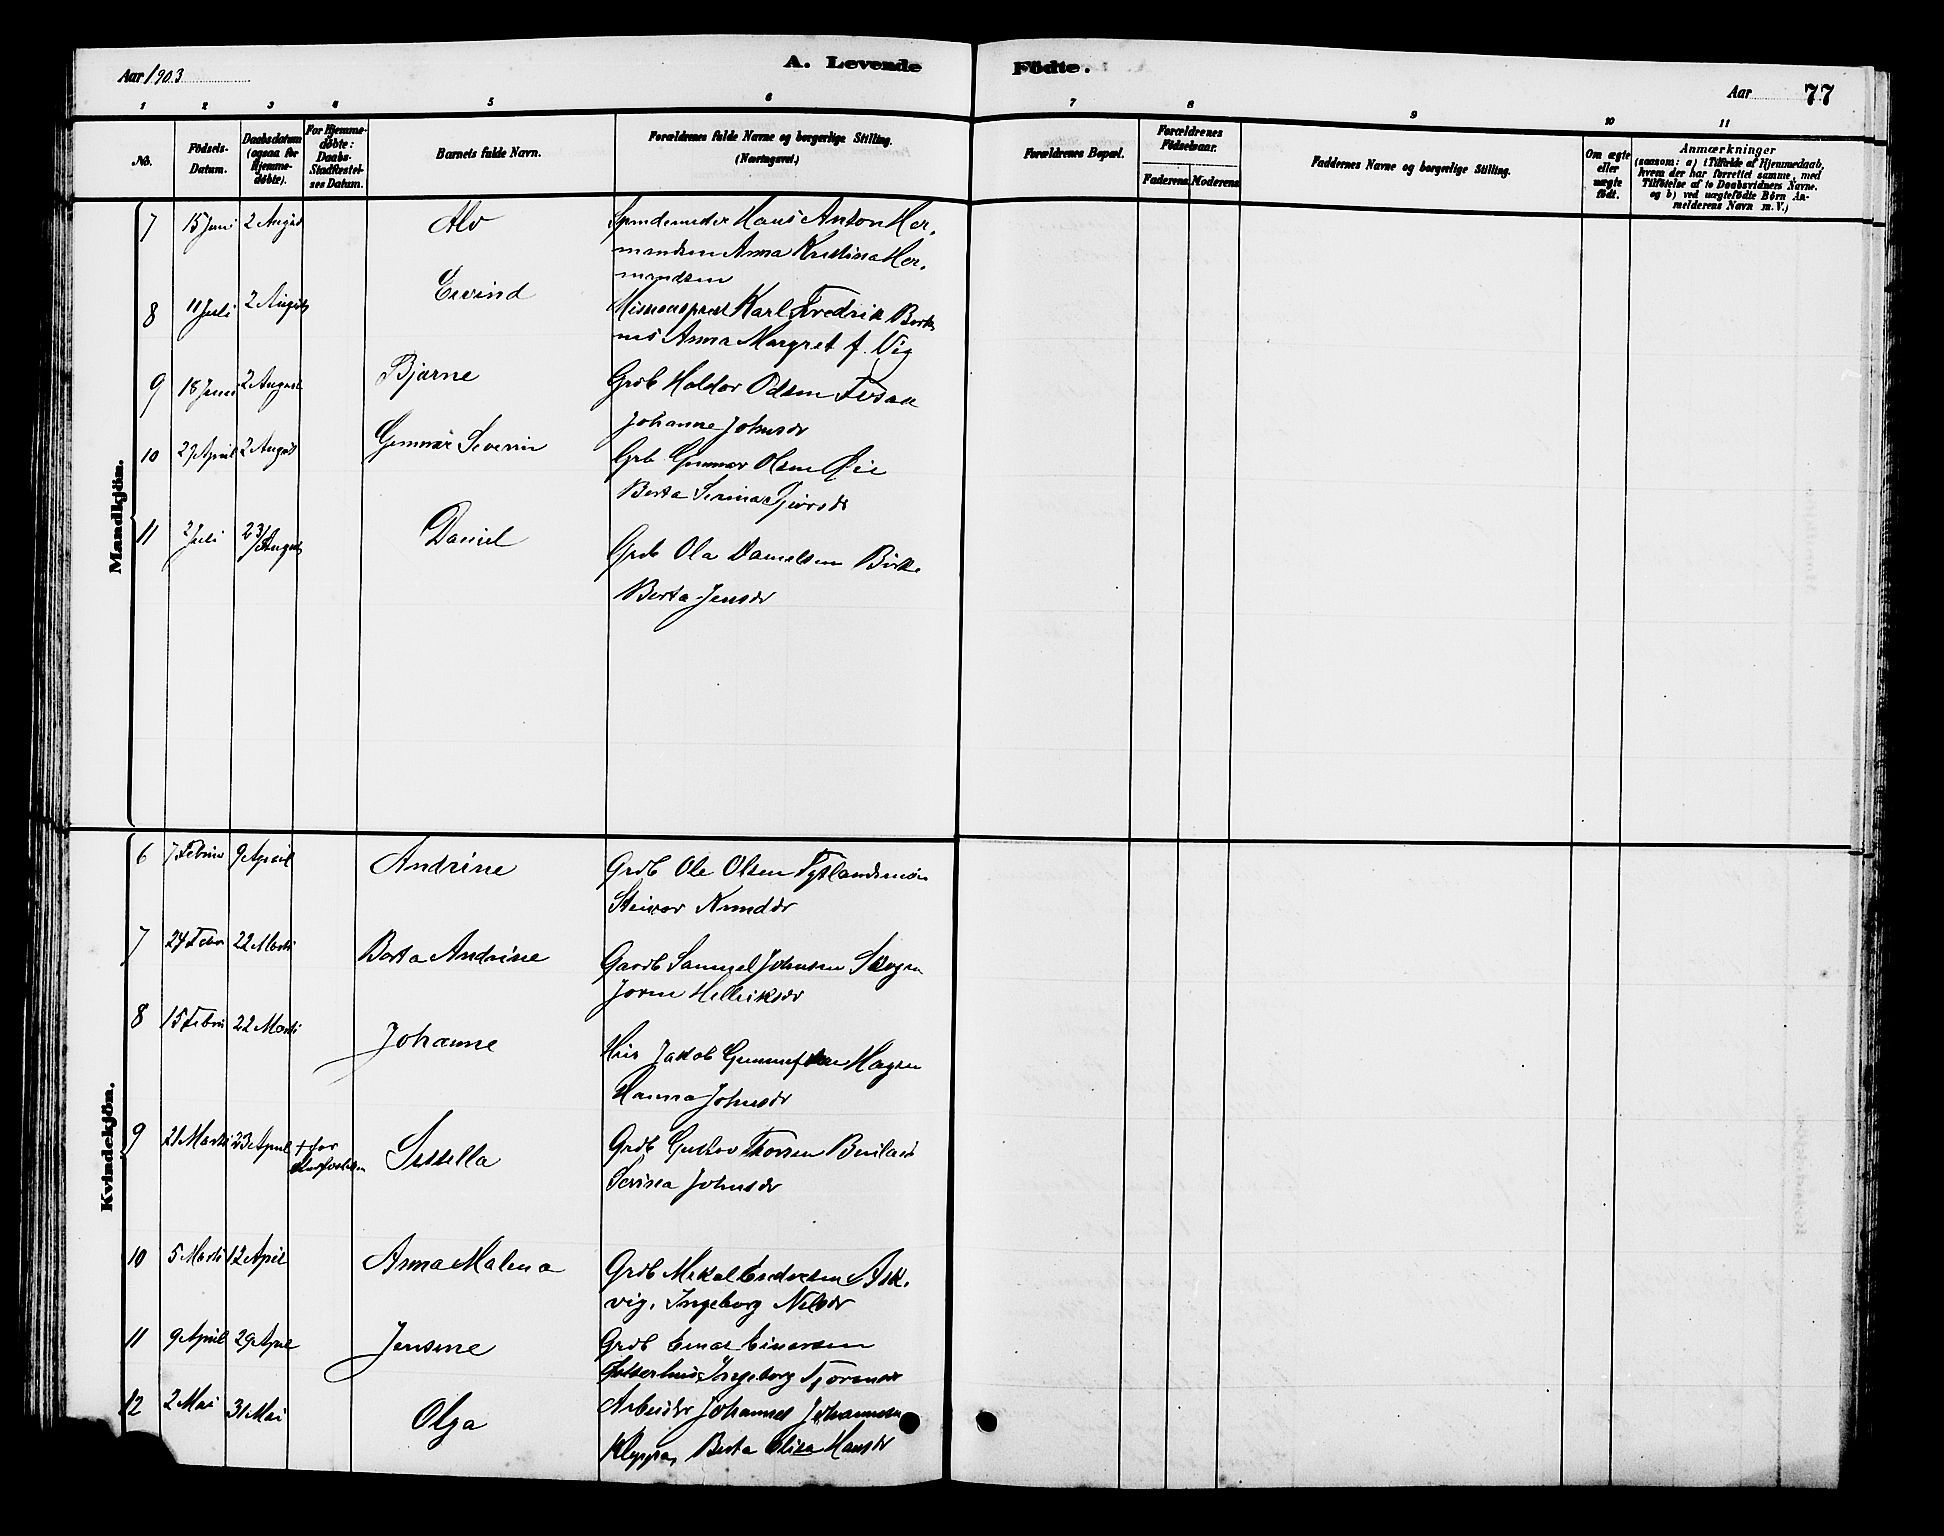 Aar 1903
A. Levende Födte.
Aar 77
1 2 3 4 5 6 7 8 9 10 11
No.
Födsels-
Datum.
Daabsdatum
(ogsaa for
Hjemme-
døbte).
For Hjemme-
døbte:
Daabs-
Stadfæstel-
ses Datum.
Barnets fulde Navn.
Forældrenes fulde Navne og borgerlige Stilling.
(Næringsvei.)
Forældrenes Bopæl.
Forældrenes
Födselsaar.
Faderens. Moderens.
Faddernes Navne og borgerlige Stilling.
Om ægte
eller
uægte
født.
Anmærkninger
(saasom: a) i Tilfælde af Hjemmedaab,
hvem der har forrettet samme, med
Tilføielse af to Daabsvidners Navne.
og b) ved uægtefødte Børn An-
melderens Navn m. V.)
Mandkjön.
7 15 Juni 2 August Alv Hans Anton Her-
mandsen Anna Kristina Her-
mandsen
8 11 Juli 2 August Eivind Missionsprest Karl Fredrik
Anna Margret f. Vig
9 18 Juni 2 August Bjarne Grdb Haldor Odsen
Johanne Johnsdr
10 29 April 2 August Gunnar Severin Grb Gunnar Olsen Øie
Berta Serina
11 2 Juli 23/ August Daniel Grdb Ola Danielsen Birke
Berta Jensdr
Kvindekjön.
6 7 Febru 9 April Andrine Grdb Ole Olsen
Steinvor Knudsdr
7 24 Febr 22 Marts Berta Andrine Gardb Samuel Johnsen Skogen
Helleiksdr
8 15 Febru 22 Marts Johanne Jakob Hagen
Hanna Johnsdr
9 21 Marts 23 April + før Sissella Grdb Gustav Thorsen
Serina Johnsdr
10 5 Marts 12 April Anna Malena Grdb Mikal Endresen Ask-
vig, Ingeborg Nilsdr
11 9 April 29 April Jensine Grdb Einar Einarsen
Ingeborg
12 2 Mai 31 Mai Olga Arbeider Johannes Johannesen
Kleppa, Berta Elisa Hansdr